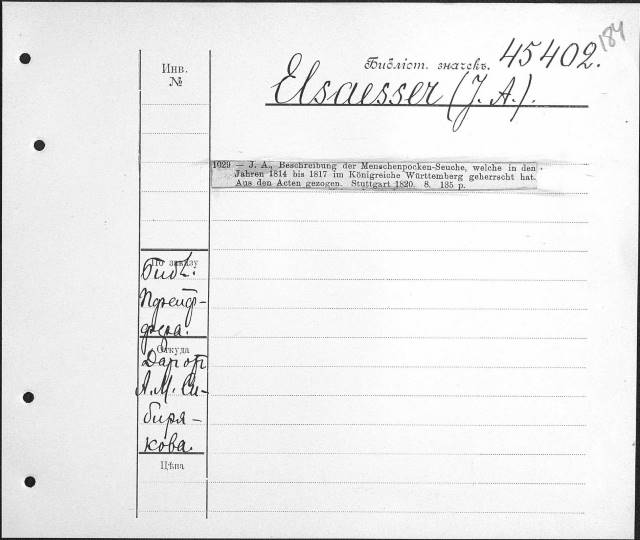 184
Инв.
№
Библіот. значекъ. 45402.
Elsaesser (J. A.).
1029 — J. A., Beschreibung der Menschenpocken-Seuche, welche in den
Jahren 1814 bis 1817 im Königreiche Württemberg geherrscht hat.
Aus den Acten gezogen. Stuttgart 1820. 8. 135 p.
По заказу
Библ.
Пфейф-
фера.
Откуда
Дар от
А. М. Си-
биря-
кова.
Цѣна